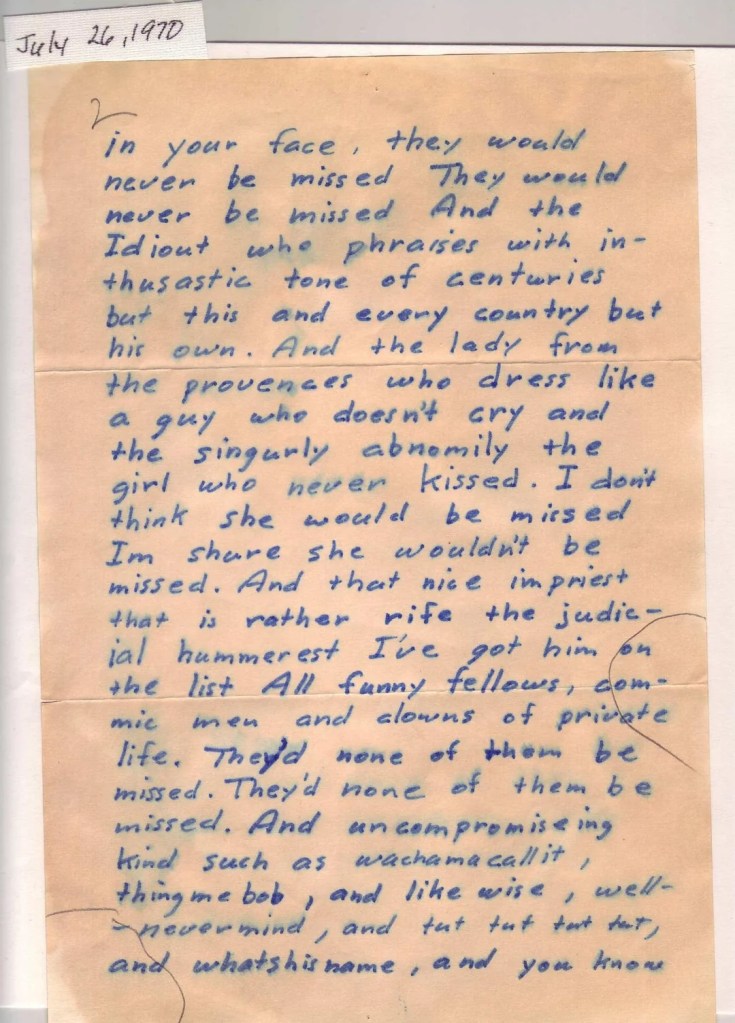 July 26, 1970
2
in your face, they would
never be missed They would
never be missed And the
Idiout who phraises with in-
thusastic tone of centuries
but this and every country but
his own. And the lady from
the provences who dress like
a guy who doesn't cry and
the singurly abnomily the
girl who never kissed. I don't
think she would be missed
Im share she wouldn't be
missed. And that nice impriest
that is rather rife the judic-
ial hummerest I've got him on
the list All funny fellows, com-
mic men and clowns of private
life. They'd none of them be
missed. They'd none of them be
missed. And uncompromiseing
kind such as wachamacallit,
thingmebob, and like wise, well-
-nevermind, and tut tut tut tut,
and whatshisname, and you know